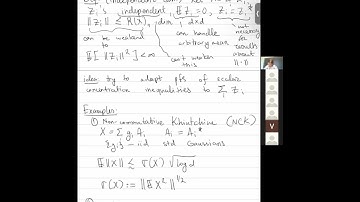 Z_i's independent, E Z_i = 0, Z_i = Z_i*
‖Z_i‖ ≤ R(X), dim d×d
can be weakened to
E[‖Z_i‖²] < ∞
can handle arbitrary mean
can't weaken this
Not necessary for results about ‖·‖
Idea: try to adapt pfs of scalar
concentration inequalities to Σ Z_i
Examples:
① Non-commutative Khintchine (NCK)
X = Σ g_i A_i A_i = A_i*
{g_i} – iid std Gaussians
E‖X‖ ≲ σ(X) √log d
σ(X) := ‖E X²‖^{1/2}
V